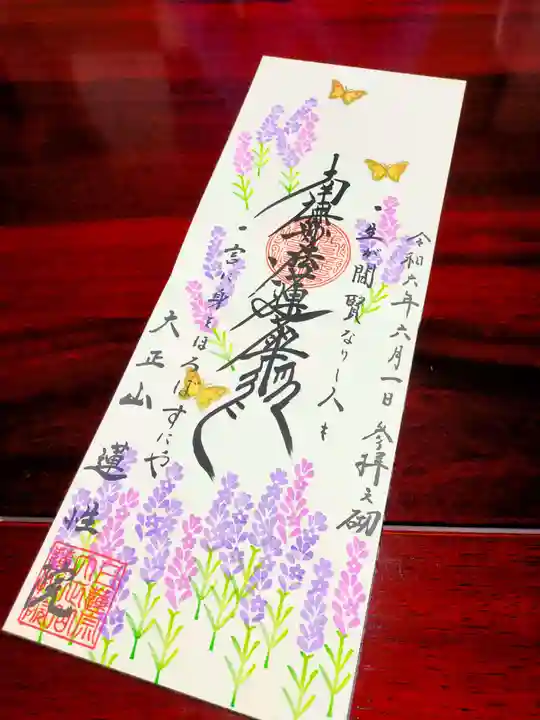 令和六年六月一日 参拝之砌
一生が間賢なりし人も
南無妙法蓮華経
一言に身をほろぼすにや
大正山 蓮性